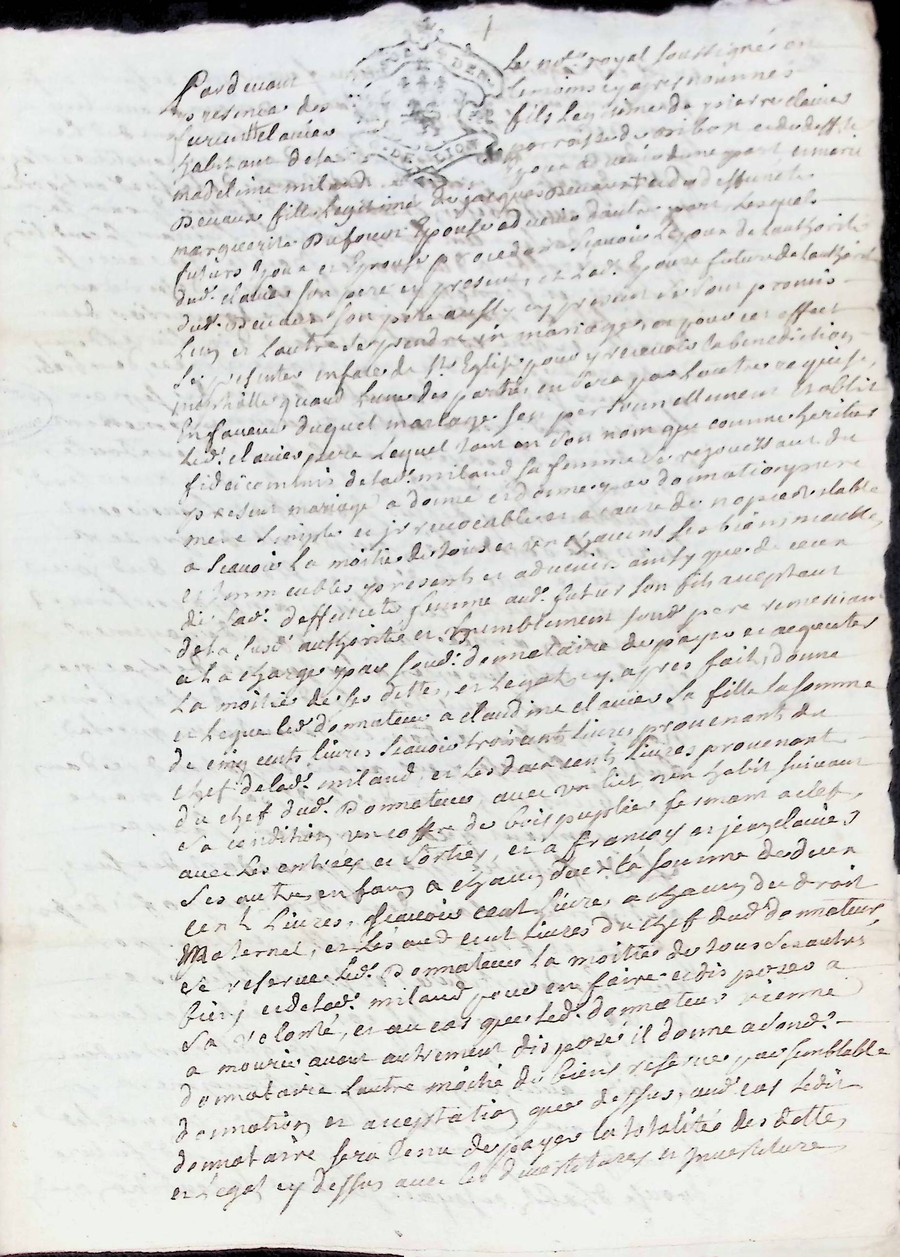 Pardevant le not.e royal soussigné en
presence des temoins cy apres nommés
furent clavier fils legitime de pierre clavier
habitant de la parroisse de ribon et de deffte
madeleine milaud epoux advenir d'une part et marie
Devaux fille legitime de jacques Devaux et de deffuncte
marguerite Dufour Epouse advenir d'autre part lesquels
futurs Epoux et Epouse procedans scavoir l'epoux de l'authorité
dud. clavier son pere cy present, et lad. Epouse future de l'authorité
dud. Devaux son pere aussy cy present se sont promis
l'un et l'autre se prendre en mariage et pour cet effect
se presenter en face de Ste Eglise pour y recevoir la benediction
nuptialle quand l'une des parties en sera par l'autre requise,
En faveur duquel mariage s'en personnellement etablit
led. clavier pere lequel tant en son nom que comme heritier
fideicommis de lad. milaud sa femme se rejouissant du
present mariage a donné et donne par donation pure
mere simple et irrevocable et a cause de nopces valable
a scavoir la moitié de tous et un chacuns ses biens meubles
et immeubles presents et advenir ainsy que de ceux
de lad. deffuncte femme aud. futur son fils acceptant
de la susd. authorité et humblement sond. pere remerciant
a la charge par soud. donnataire de payer et acquitter
la moitié de ses dettes, et legats cy apres faits, donne
et legue led. donnateur a claudine clavier sa fille la somme
de cinq cents livres scavoir trois cent livres provenant du
chef de lad. milaud, et les deux cent livres provenant
du chef dud. Donnateur avec un lict un habit suivant
sa condition un coffre de bois peuplier fermant a clef,
avec les entrées et sorties, et a françois et jean clavier
ses autres enfans a chacun d'eux la somme de deux
cent livres, scavoir cent livres a chacun du droit
Maternel, et les aud. cent livres du chef dud. donnateur,
se reserve led. Donnateur la moitié de tous ses autres
biens et de lad. milaud pour en faire et disposer a
sa volonté, et au cas que led. donnateur vienne
a mourir avant autrement disposé il donne a sond.
donnataire l'autre moitié des biens reservé par semblable
donnation et acceptation que dessus, aud. cas ledit
donnataire sera tenu de payer la totalité des dettes
et legat cy dessus avec les divestitures et investitures